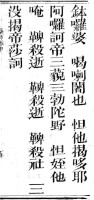 鉢囉婆　喝喇闍也　怛他揭哆耶
阿囉訶帝三藐三勃陀野　怛姪他
唵　鞞殺逝　鞞殺逝　鞞殺社　三
没揭帝莎訶